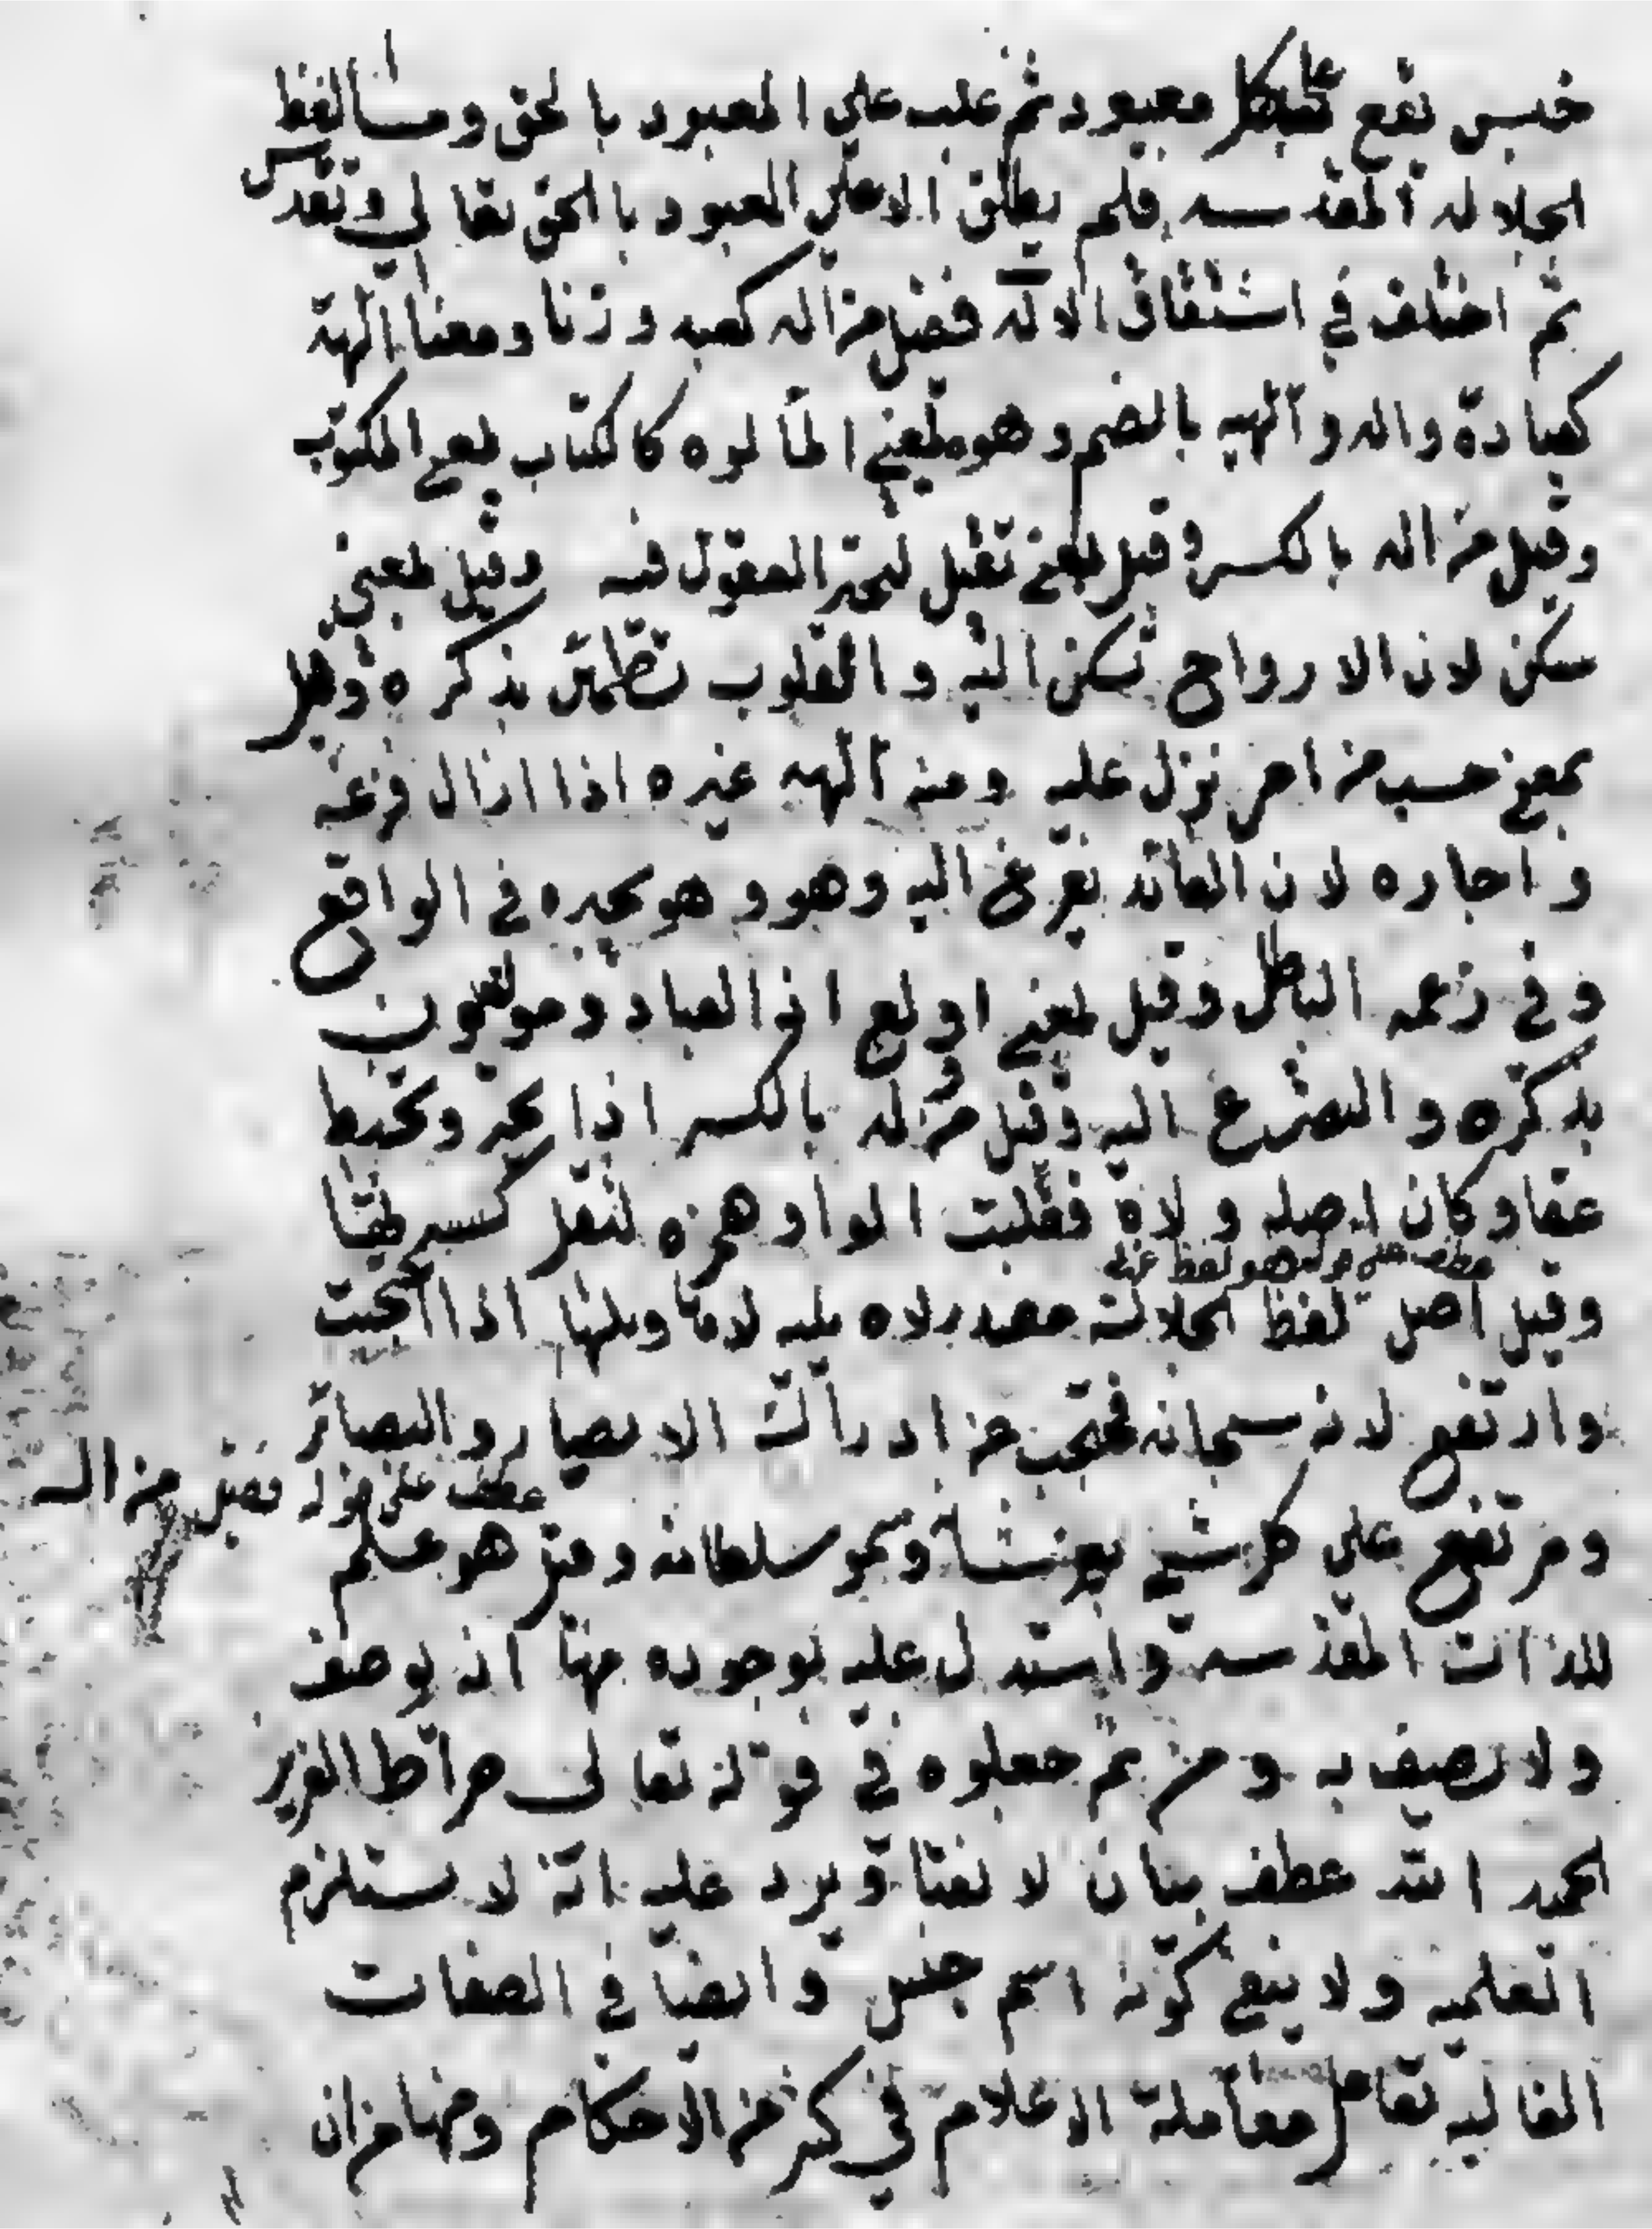 جنس يقع على كل معبود ثم غلب على المعبود بالحق وما لفظ
الجلالة المقدسه فلم يطلق الا على المعبود بالحق تعالى وتقدس
ثم اختلف في اشتقاق الاله فقيل من اله كعبه وزنا ومعنا الهة
كعبادة واله والهيه بالضم وهو بمعني المالوه كالكتاب بمعني المكتوب
وقيل من اله بالكسر وقيل بمعني تقبل لتحير العقول فيه وقيل بمعني
سكن لان الارواح تسكن اليه والقلوب تطمئن بذكره وقيل
بمعني حسب من امر نزل عليه ومنه الهه غيره اذا ازال فزعه
واجاره لان العائد يفزع اليه وهو وهو يجيره في الواقع
وفي زعمه الباطل وقيل بمعني اولع اذ العباد مولعون
بذكره والتضرع اليه وقيل من وله بالكسر اذا تحير وتخبط
عقا وكان اصله ولاه فقلبت الواو همزه لثقل كسرتها
عطف على قوله هو لفظ
وقيل اصل لفظ الجلالة مصدر لاه يليه لاها وليها اذا احتجب
وارتفع لانه سبحانه محتجب من ادراك الابصار والبصائر
عطف على قوله فقيل من اله
ومرتفع على كل شي بعز شانه وسمو سلطانه وقيل هو علم
للذات المقدسه واستدل عليه بوجوده منها انه يوصف
ولا يصف به ومن ثم جعلوه في قوله تعالى صراط العزيز
الحميد الله عطف بيان لا نعتا ويرد عليه انه لا يستلزم
العلميه ولا ينفي كونه اسم جنس وايضا في الصفات
الغالبه تعامل معاملة الاعلام في كثير من الاحكام ومنها من ان